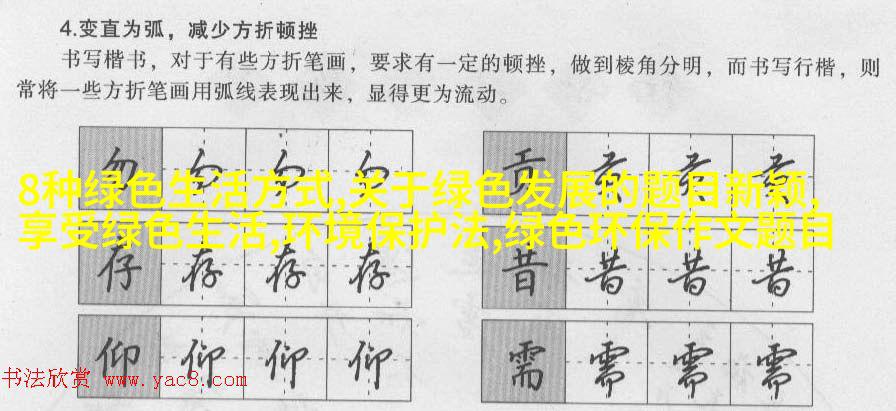 4.变直为弧，减少方折顿挫
书写楷书，对于有些方折笔画，要求有一定的顿挫，做到棱角分明，而书写行楷，则
常将一些方折笔画用弧线表现出来，显得更为流动。
勿 勿 勿 勿 贡 贡 贡 贡
8种绿色生活方式,关于绿色发展的题目新颖,
享受绿色生活,环境保护法,绿色环保作文题目
存 存 存 存 昔 昔 昔 昔
仰 仰 仰 仰 需 需 需 需
书法欣赏 www.yac8.com